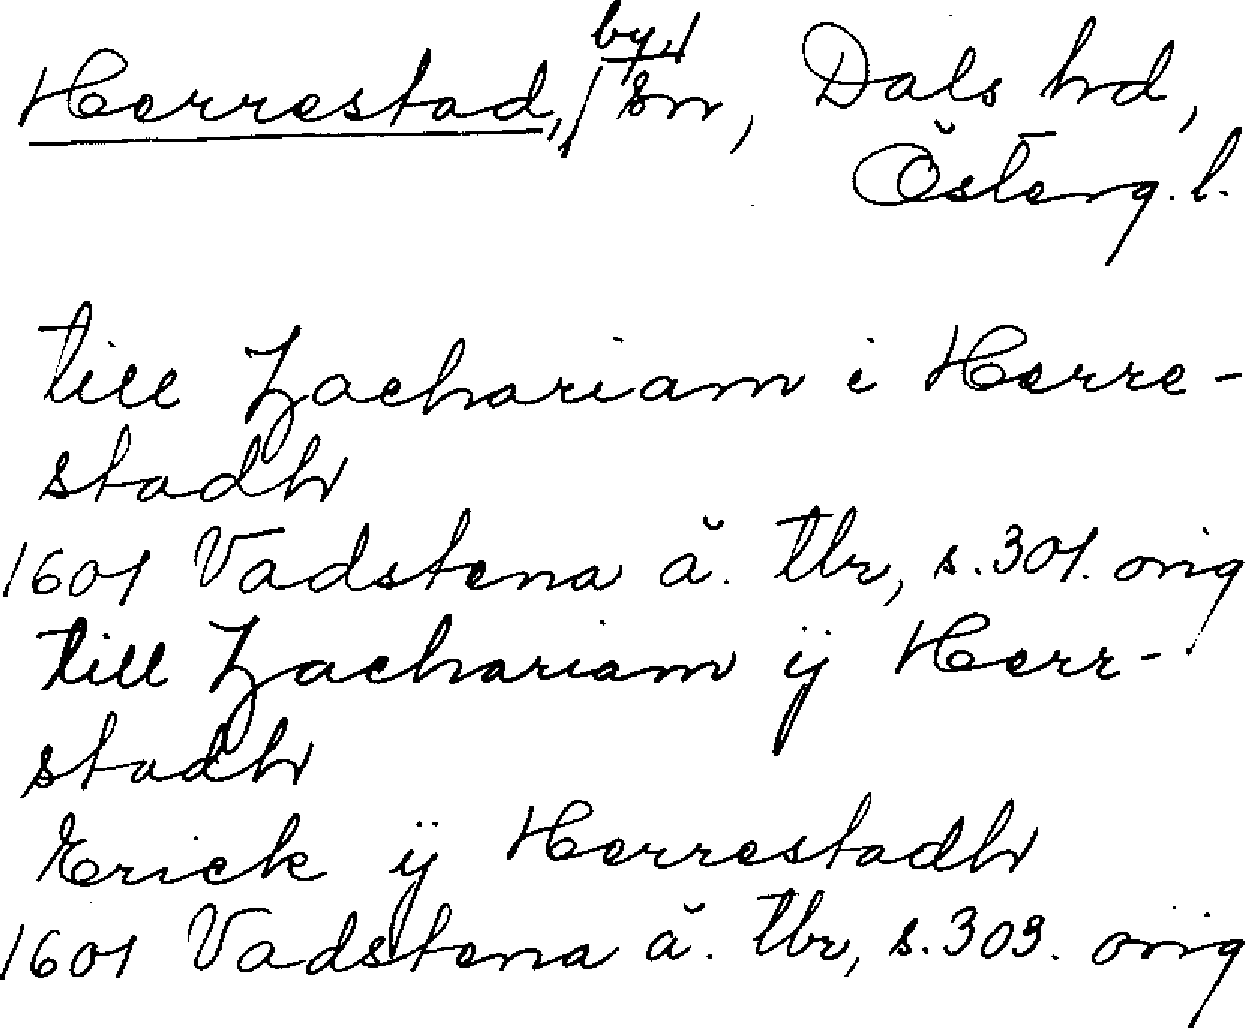 Herrestad, by, sn, Dals hd,
Österg. l.
till Zachariam i Herre-
stadh
1601 Vadstena ä. Tbr, s. 301. orig
till Zachariam ÿ Herr-
stadh
Erick ÿ Herrestadh
1601 Vadstena ä. Tbr, s. 303. orig